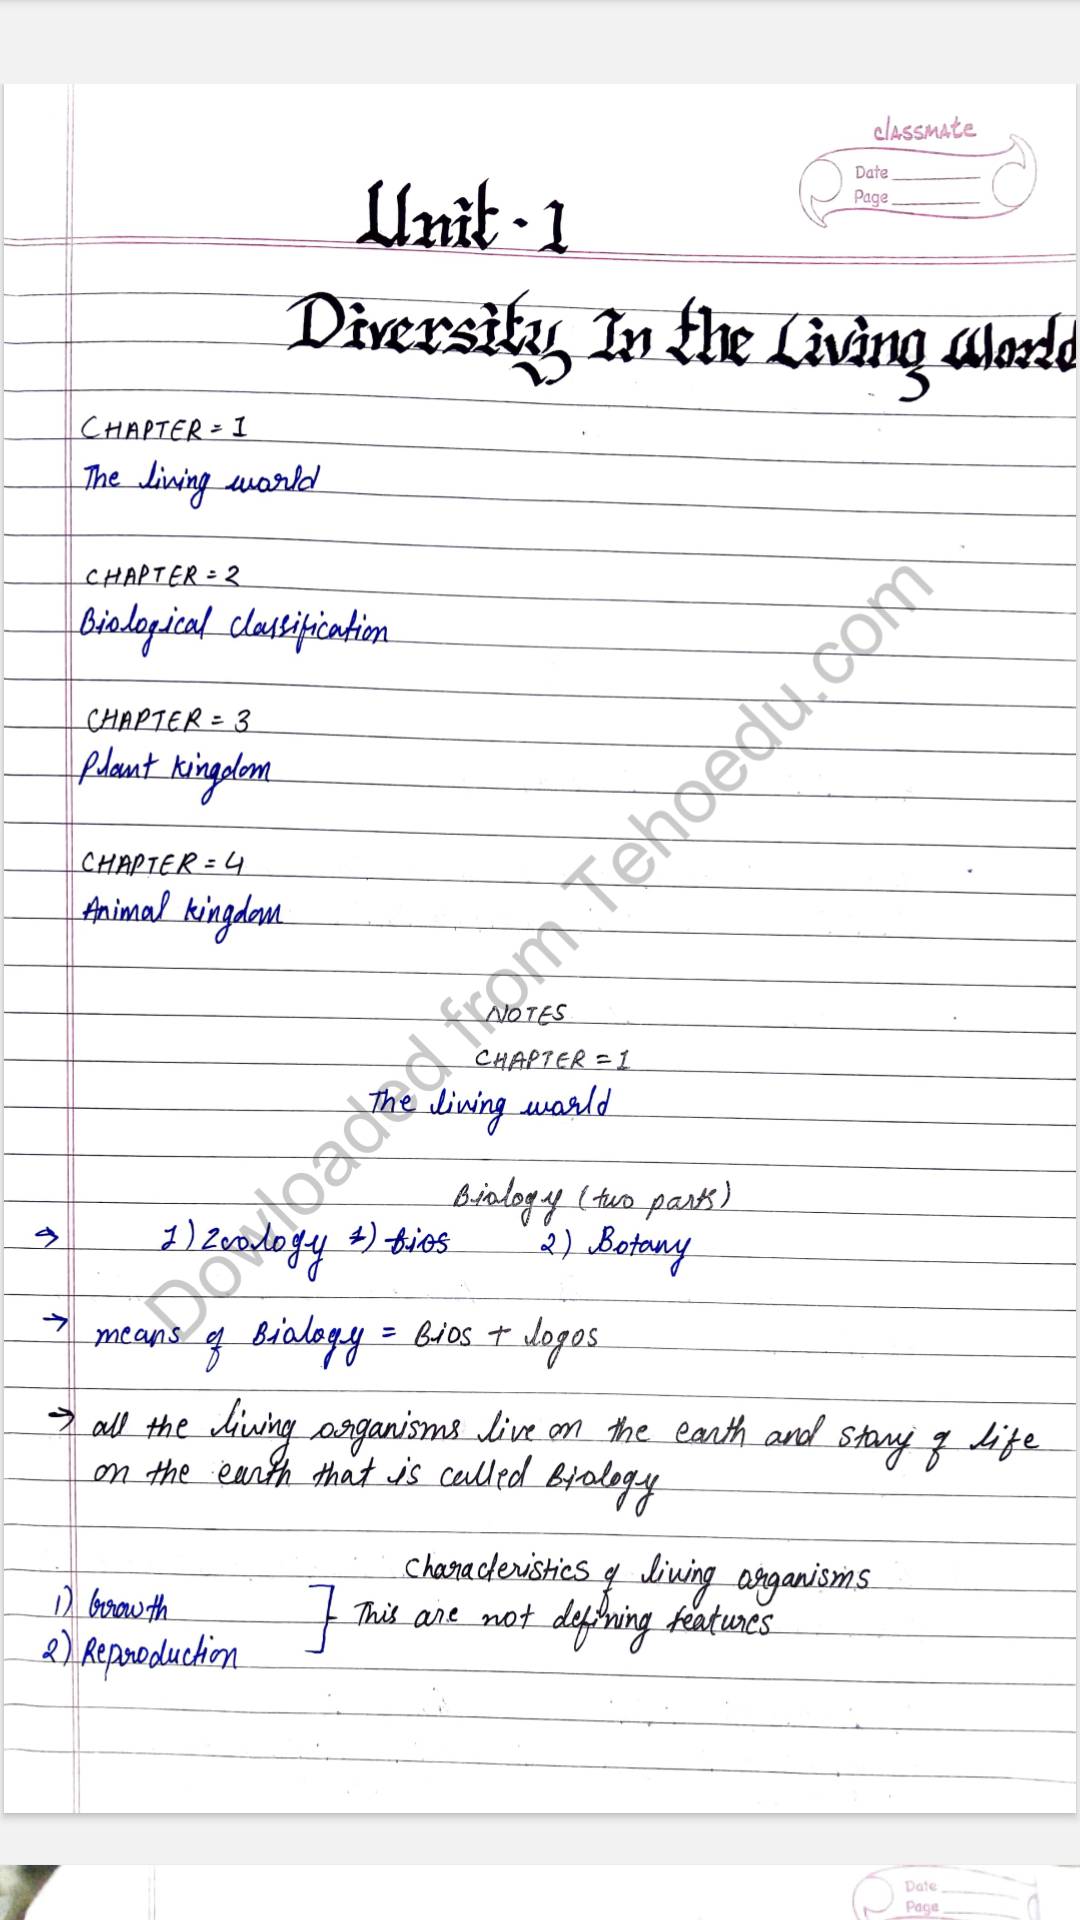 classmate
Date
Page
Unit - 1
Diversity In the Living World
CHAPTER = 1
The living world
CHAPTER = 2
Biological classification
CHAPTER = 3
Plant kingdom
CHAPTER = 4
Animal kingdom
NOTES
CHAPTER = 1
The living world
Biology (two parts)
→ 1) Zoology 1) Bios 2) Botany
→ means of Biology = Bios + logos
→ all the living organisms live on the earth and story of life
on the earth that is called Biology
Characteristics of living organisms
1) Growth
This are not defining features
2) Reproduction
Dowloaded from Tehoedu.com
Date
Page